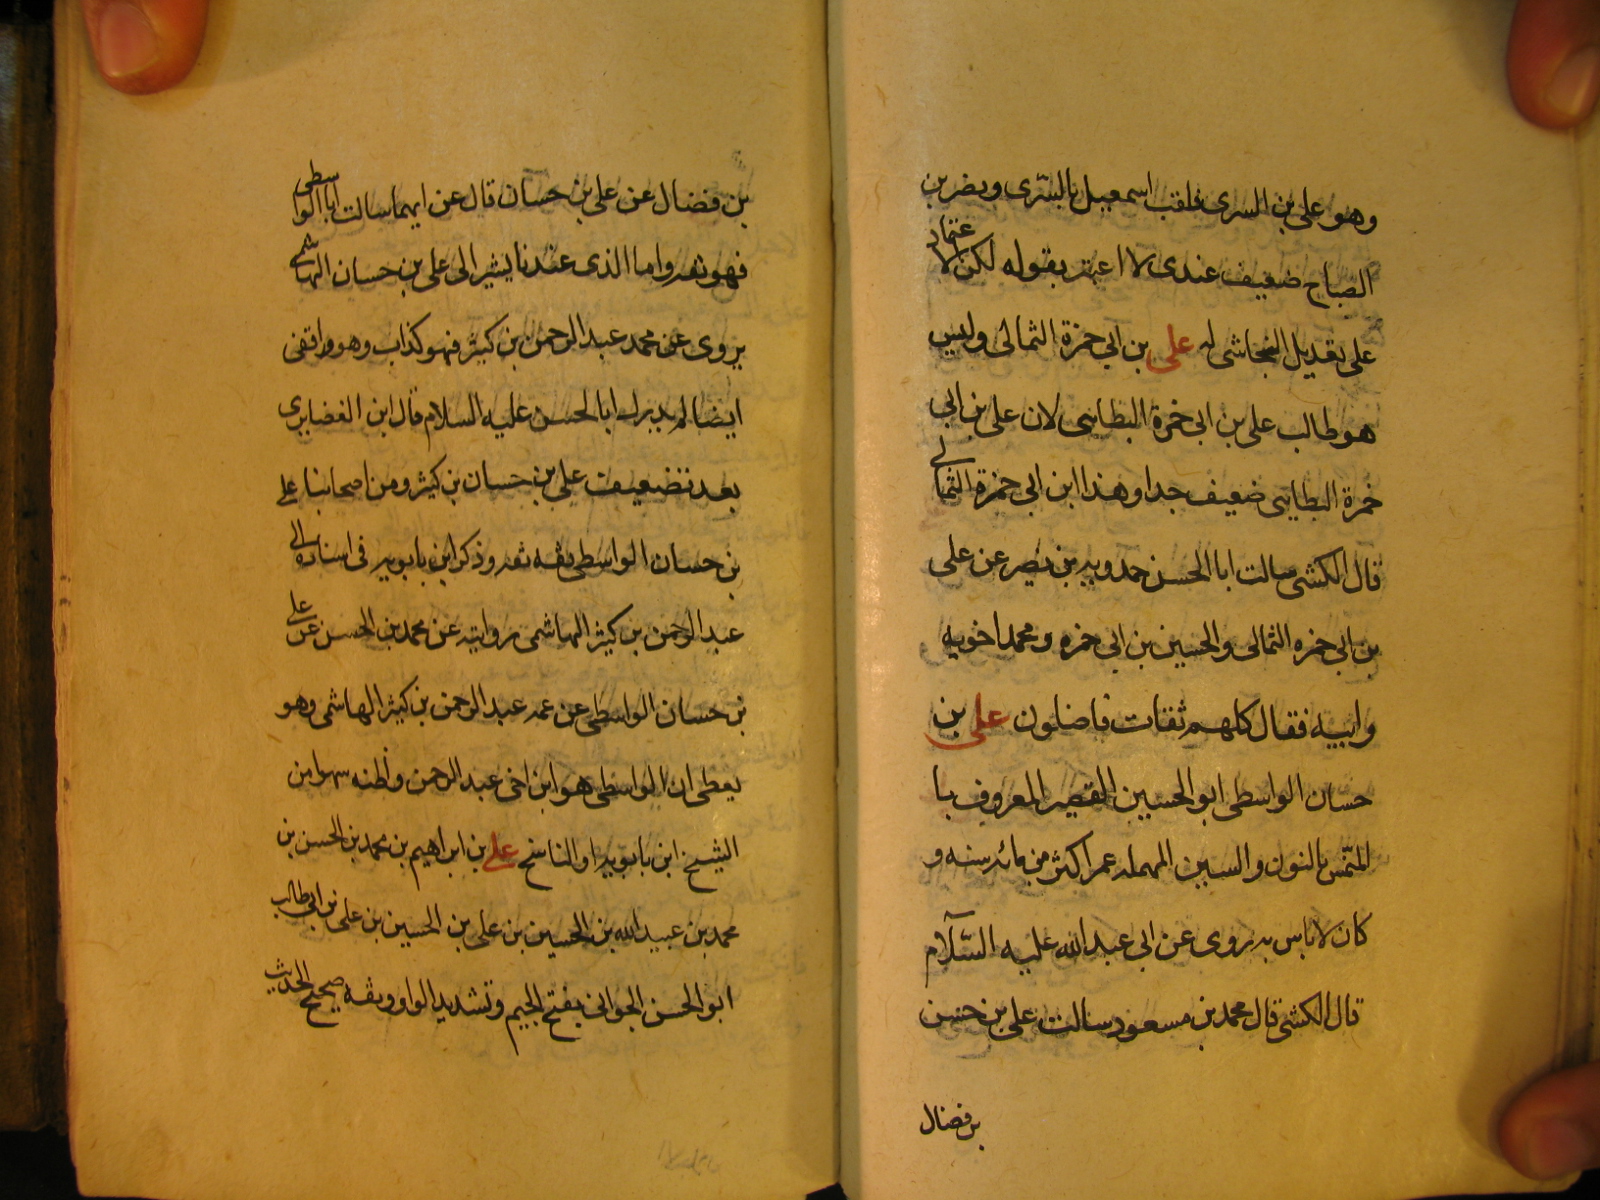 وهو علي بن السرى فلقب اسمعيل بالسّرى ونصر بن
الصباح ضعيف عندى لا اعتبر بقوله لكن الاعتماد
على تعديل النجاشى له على بن ابي حمزة الثمالى وليس
هو طالب على بن ابى حمزة البطاينى لان على بن ابى
حمزة البطاينى ضعيف جدا وهذا ابن ابى حمزة الثمالي
قال الكشى سالت ابا الحسن حمدويه بن نصير عن على
بن ابي حمزه الثمالى والحسين بن ابى حمزه ومحمد اخويه
وابيه فقال كلهم ثقات فاضلون على بن
حسان الواسطى ابو الحسين القصير المعروف با
لمنمّس بالنون والسين المهمله عمر اكثر من مائه سنه و
كان لا باس به روى عن ابى عبد الله عليه السّلام
قال الكشى قال محمد بن مسعود سالت على بن حسن
بن فضال
بن فضال عن على بن حسان قال عن ايهما سالت اما الواسطى
فهو ثقه واما الذى عندنا يشير الى على بن حسان الهاشمي
يروى عن محمد عبد الرحمن بن كثير فهو كذاب وهو واقفى
ايضا لم يدرك ابا الحسن عليه السلام قال ابن الغضايرى
بعد تضعيف على بن حسان بن كثير ومن اصحابنا على
بن حسان الواسطى ثقه ثقه وذكر ابن بابويه فى اسناده الى
عبد الرحمن بن كثير الهاشمى روايته عن محمد بن الحسن عن علي
بن حسان الواسطى عن عمه عبد الرحمن بن كثير الهاشمى وهو
يعطى ان الواسطى هو ابن اخى عبد الرحمن واظنه سهوا من
الشيخ ابن بابويه او الناسخ على بن ابراهيم بن محمد بن الحسن بن
محمد بن عبيد الله بن الحسين بن على بن الحسين بن على بن ابى طالب
ابو الحسن الجوانى بفتح الجيم وتشديد الواو وثقه صحيح الحديث